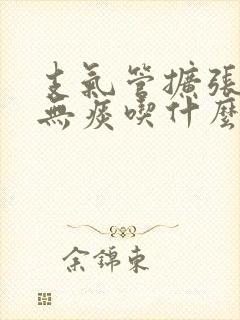 支氣管擴張
無痰喫什麼
余錦東